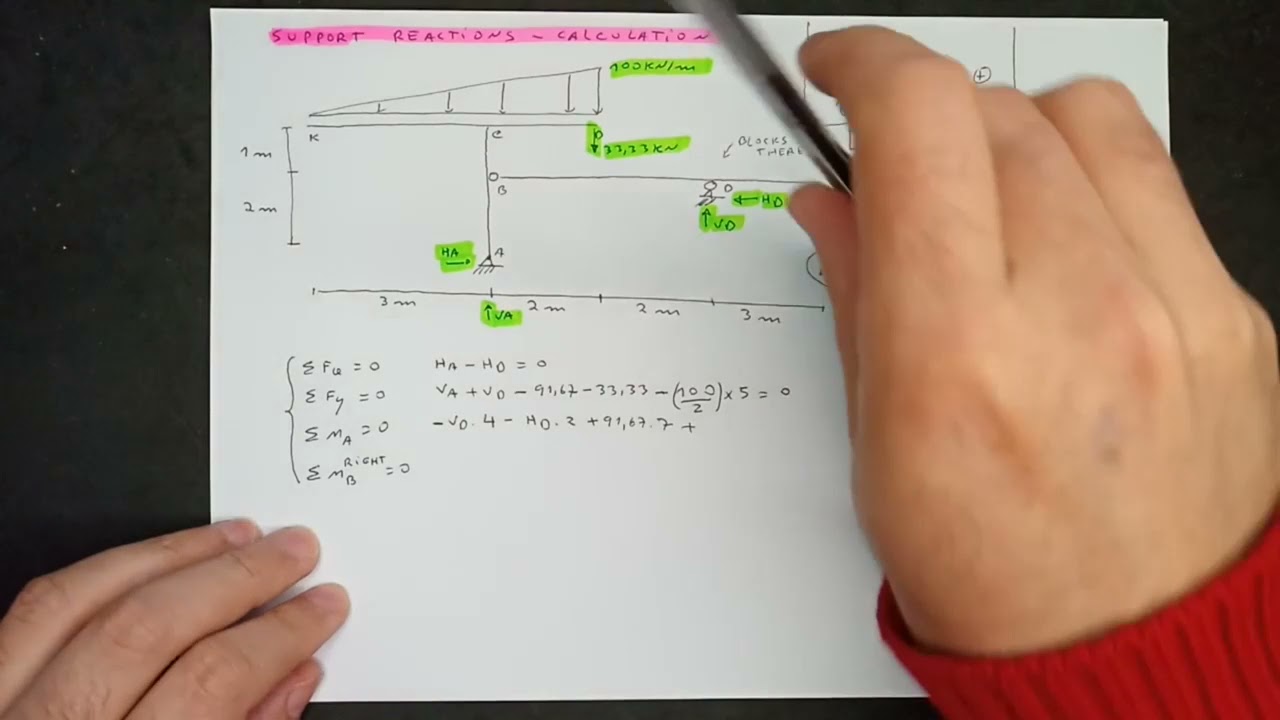 SUPPORT REACTIONS - CALCULATION
100 KN/m
K
C
P
33,33 KN
BLOCKS
1 m
B
D
HD
2 m
VD
HA
A
3 m
VA
2 m
2 m
3 m
Σ Fx = 0 HA - HD = 0
Σ Fy = 0 VA + VD - 91,67 - 33,33 - (100/2) × 5 = 0
Σ MA = 0 - VD. 4 - HD. 2 + 91,67. 7 +
Σ MB RIGHT = 0